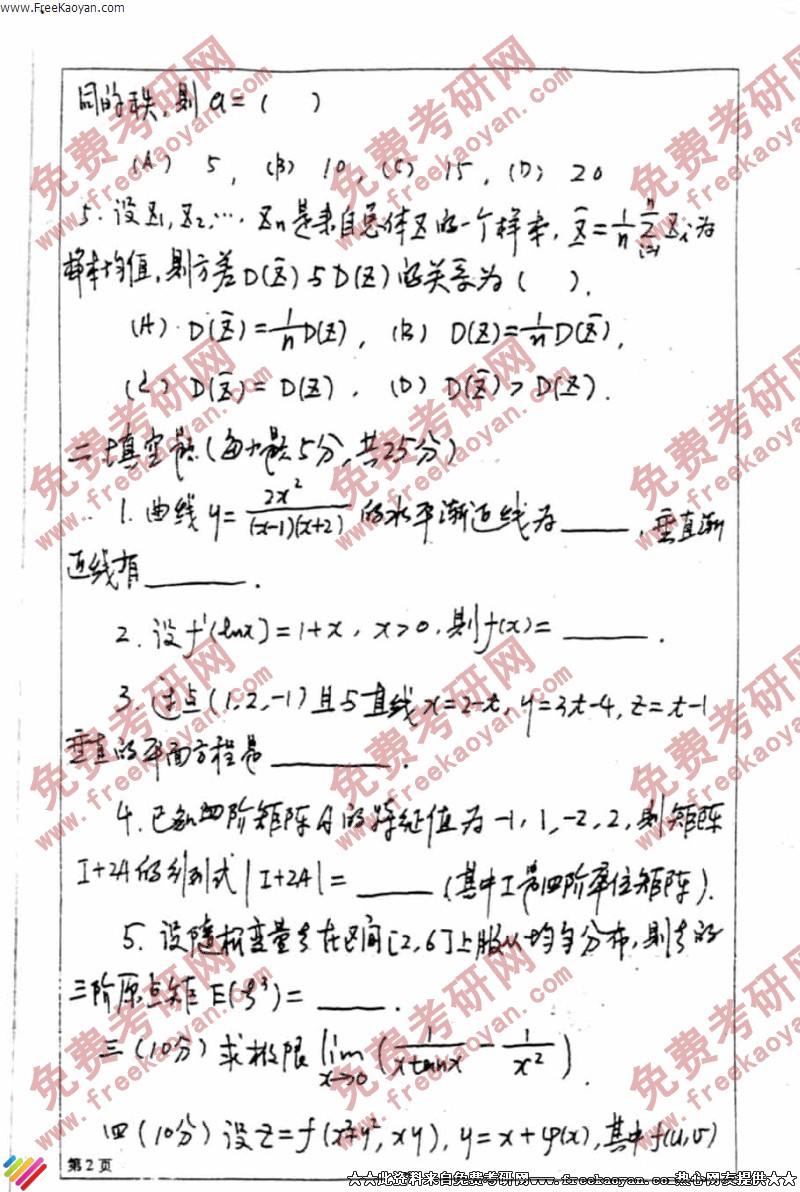 www.FreeKaoyan.com
同的秩，则 a = (    )
(A) 5, (B) 10, (C) 15, (D) 20
5. 设 X₁, X₂, … Xn 是来自总体 X 的一个样本, X̄ = 1/n ∑ᵢ₌₁ⁿ Xᵢ 为
样本均值, 则方差 D(X̄) 与 D(X) 的关系为 (    ).
(A) D(X̄) = 1/n D(X), (B) D(X) = 1/n D(X̄),
(C) D(X̄) = D(X), (D) D(X̄) > D(X).
二 填空题 (每小题5分, 共25分)
1. 曲线 y = 2x²/((x-1)(x+2)) 的水平渐近线为 ____, 垂直渐
近线有 ____.
2. 设 f'(lnx) = 1+x, x>0, 则 f(x) = ____.
3. 过点 (1, 2, -1) 且与直线 x=2-t, y=3t-4, z=t-1
垂直的平面方程是 ____.
4. 已知四阶矩阵 A 的特征值为 -1, 1, -2, 2, 则矩阵
I+2A 的行列式 |I+2A| = ____ (其中 I 是四阶单位矩阵).
5. 设随机变量 ξ 在区间 [2, 6] 上服从均匀分布, 则 ξ 的
三阶原点矩 E(ξ³) = ____.
三 (10分) 求极限 lim x→0 (1/(x tanx) - 1/x²).
四 (10分) 设 z = f(x²+y², xy), y = x+φ(x), 其中 f(u,v)
第 2 页
★☆此资料来自免费考研网www.freekaoyan.com热心网友提供★☆
免费考研网
www.freekaoyan.com